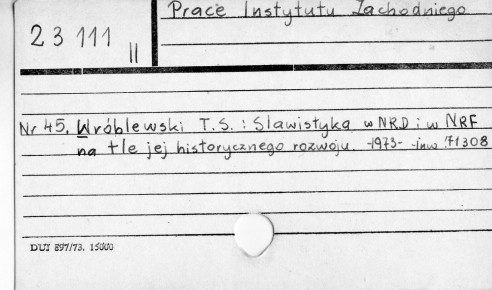 Prace Instytutu Zachodniego
23 111 II
Nr 45. Wróblewski T. S. : Slawistyka w NRD i w NRF
na tle jej historycznego rozwoju. -1973- -inw 71308
DUJ 897/73. 15000